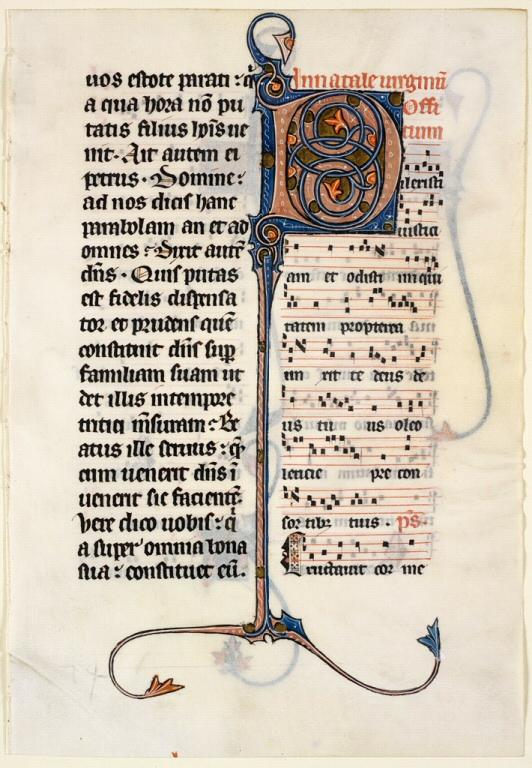 uos estote parati : q̃
a qua hora nõ pu
tatis filius hoĩs ue
niet · Ait autem ei
petrus · Domine :
ad nos dicis hanc
parabolam an et ad
omnes : Dixit autẽ
dñs · Quis putas
est fidelis dispensa
tor et prudens quẽ
constituit dñs sup
familiam suam ut
det illis in tempore
tritici mẽsuram : Be
atus ille seruus : quẽ
cum uenerit dñs ĩ
uenerit sic facientẽ
Uere dico uobis : q̃
a super omnia bona
sua : constituet eũ .
In natale uirginũ
Offi
cium
Dilexisti
iusticiam
am et odisti iniqui
tatem propterea
un xit te deus de
us tu us oleo
leticie pre con
sortibȝ tuis · p̃s .
Eructauit cor me